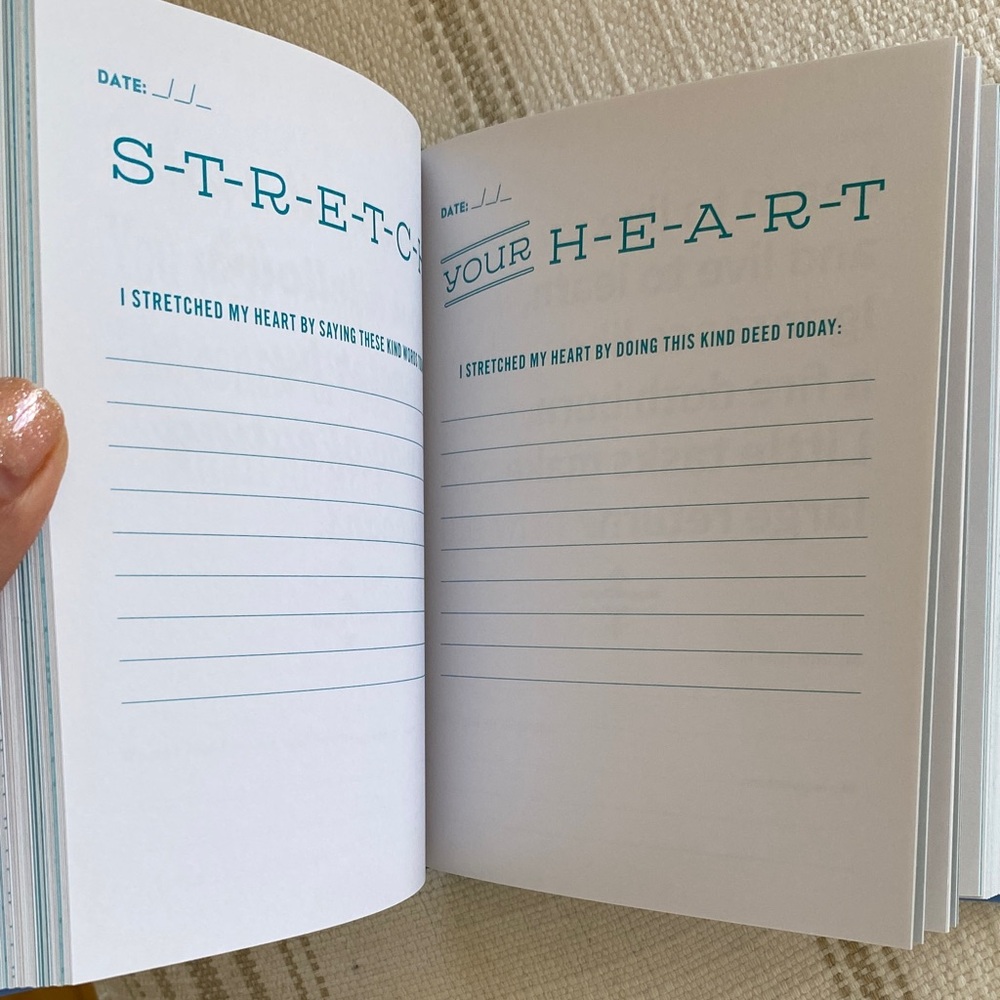 DATE: _/_/_
S-T-R-E-T-C-
I STRETCHED MY HEART BY SAYING THESE KIND WORDS
DATE: _/_/_
YOUR H-E-A-R-T
I STRETCHED MY HEART BY DOING THIS KIND DEED TODAY: